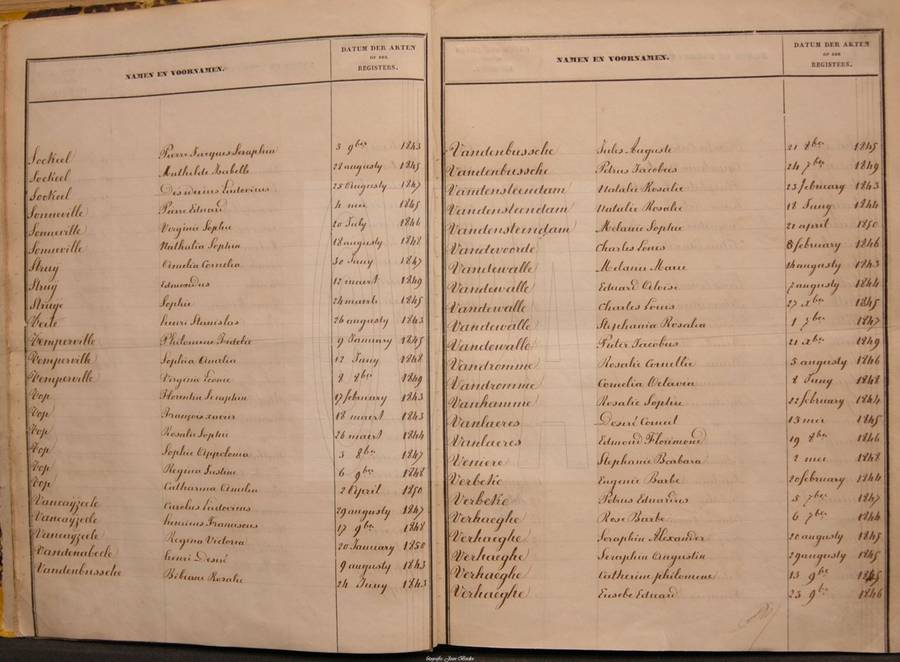 NAMEN EN VOORNAMEN.
DATUM DER AKTEN
OF DER
REGISTERS.
Sockeel Pierre Jacques Seraphin 3 9ber 1843
Sockeel Mathilde Isabelle 28 augusty 1845
Sockeel Desiderius Ludovicus 25 Augusty 1847
Sonneville Eduard 4 mei 1845
Sonneville Virginie Sophie 20 July 1846
Sonneville Nathalia Sophia 18 augusty 1848
Struy Amelia Cornelia 30 Juny 1847
Struy Edmondus 12 maert 1849
Struye Sophie 24 maert 1845
henri Stanislas 26 augusty 1843
Vemperville Philomene 9 January 1845
Vemperville Sophia Amelia 12 Juny 1848
Vemperville Virginie Leonie 8 8ber 1849
Vop Florentin Seraphin 17 february 1843
Vop François xavier 18 maert 1843
Vop Rosalie Sophie 26 maert 1844
Vop Sophie Appolonia 3 8ber 1847
Vop Regina Justine 6 9ber 1848
Vop Catharina Amelia 2 April 1850
Vancayzeele Carolus Ludovicus 29 augusty 1847
Vancayzeele Henricus Franciscus 17 9ber 1848
Vancayzeele Regina Victoria 20 January 1850
Vandenabeele henri Desiré 9 augusty 1843
Vandenbussche Bibiane Rosalie 24 Juny 1843
NAMEN EN VOORNAMEN.
DATUM DER AKTEN
OF DER
REGISTERS.
Vandenbussche Jules Auguste 21 8ber 1845
Vandenbussche Petrus Jacobus 24 7ber 1849
Vandensteendam Natalie Rosalie 23 february 1843
Vandensteendam Natalie Rosalie 18 Juny 1844
Vandensteendam Melanie Sophie 21 april 1850
Vandevoorde Charles Louis 8 february 1846
Vandewalle Melanie Marie 14 augusty 1843
Vandewalle Eduard Eloise 7 augusty 1844
Vandewalle Charles Louis 27 xber 1845
Vandewalle Stephania Rosalia 1 7ber 1847
Vandewalle Pieter Jacobus 21 xber 1849
Vandromme Rosalie Cornellie 5 augusty 1846
Vandromme Cornelia Octavia 8 Juny 1848
Vanhamme Rosalie Sophie 22 february 1844
Vanlaeres Desiré Cornel 13 mei 1845
Vanlaeres Edmond Florimond 19 8ber 1846
Veniere Stephanie Barbara 2 mei 1848
Verbeke Eugenie Barbe 20 february 1844
Verbeke Petrus Eduardus 5 7ber 1847
Verhaeghe Rose Barbe 6 7ber 1844
Verhaeghe Seraphin Alexander 20 augusty 1845
Verhaeghe Seraphin Augustin 29 augusty 1845
Verhaeghe Catherine philomene 13 9ber 1845
Verhaeghe Eusebe Eduard 23 9ber 1846